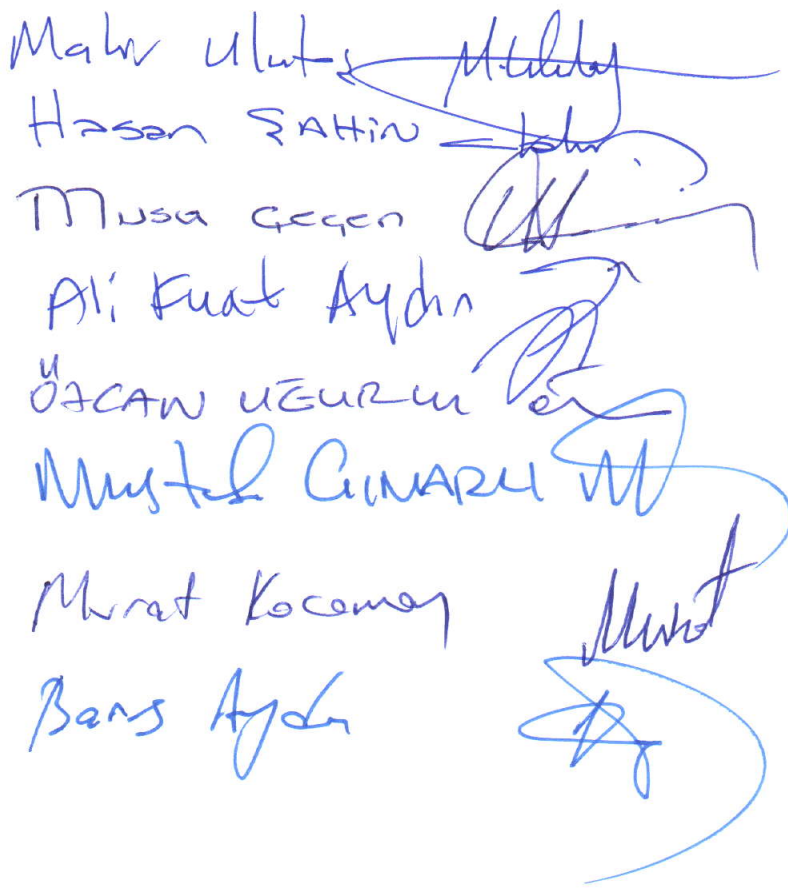 Mahir Ulutaş
Hasan ŞAHİN
Musa Çeçen
Ali Fuat Aydın
ÖZCAN UĞURLU
Mustafa ÇINARLI
Murat Kocaman Murat
Barış Aydın